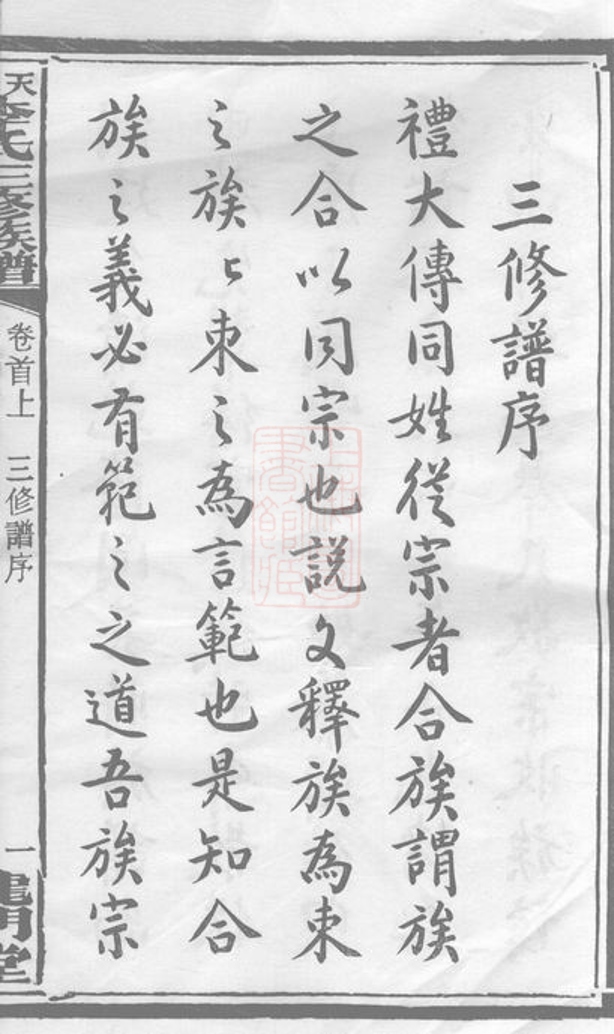 三修譜序
禮大傳同姓從宗者合族謂族
之合以同宗也説文釋族為束
之族〻束之為言範也是知合
族之義必有範之之道吾族宗
氏三修族譜
卷首上 三修譜序
一
堂